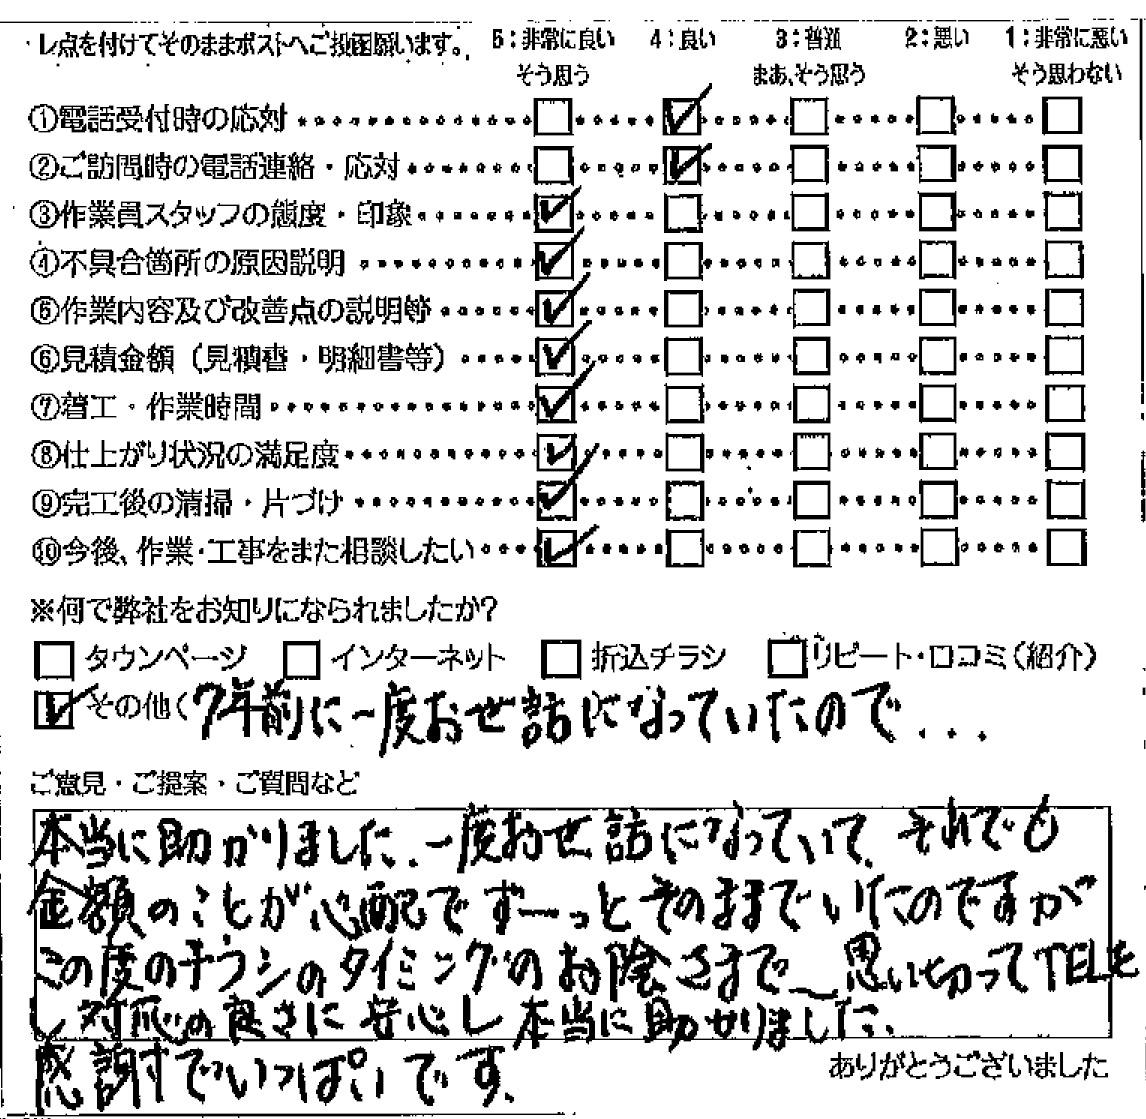 レ点を付けてそのままポストへご投函願います。 5:非常に良い 4:良い 3:普通 2:悪い 1:非常に悪い
そう思う まあ、そう思う そう思わない
①電話受付時の応対
②ご訪問時の電話連絡・応対
③作業員スタッフの態度・印象
④不具合箇所の原因説明
⑤作業内容及び改善点の説明等
⑥見積金額(見積書・明細書等)
⑦着工・作業時間
⑧仕上がり状況の満足度
⑨完工後の清掃・片づけ
⑩今後、作業・工事をまた相談したい
※何で弊社をお知りになられましたか?
タウンページ インターネット 折込チラシ リピート・口コミ(紹介)
その他( 7年前に一度お世話になっていたので...
ご意見・ご提案・ご質問など
本当に助かりました。一度お世話になっていて、それでも
金額のことが心配でずーっとそのままでいたのですが
この度のチラシのタイミングのお陰さまで、思い切ってTELを
し対応の良さに安心し本当に助かりました。
感謝すでいっぱいです。
ありがとうございました